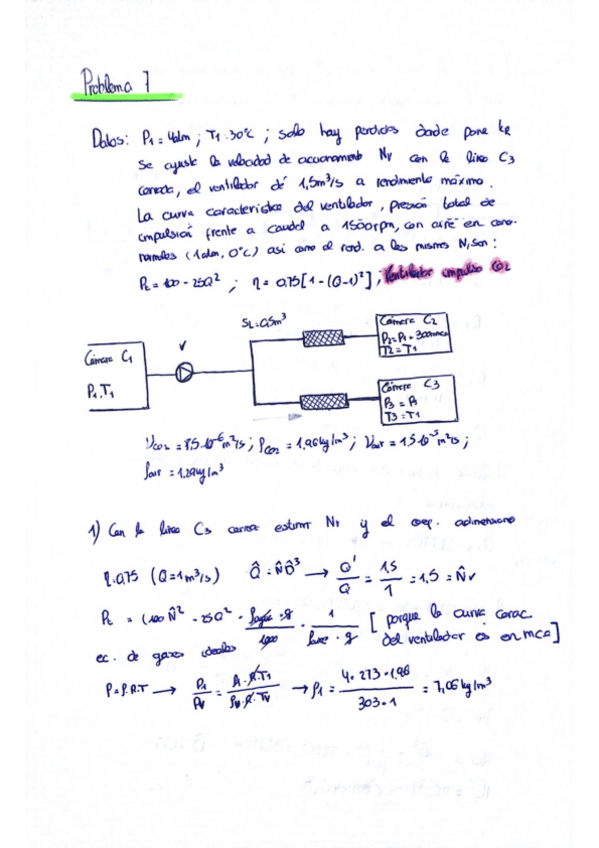 Problema 7
Datos: P1 = 4atm ; T1 = 30ºC ; solo hay perdidas donde pone kR
Se ajuste la velocidad de accionamiento Nv con la linea C3
cerrada, el ventilador dé 1,5m³/s a rendimiento máximo.
La curva característica del ventilador, presión total de
impulsión frente a caudal a 1500rpm, con aire en cono.
normales (1atm, 0ºC) así como el rend. a las mismas N, son:
Pt = 100 - 25Q² ; η = 0.75[1 - (Q-1)²] , Ventilador impulsa CO2
SL = 0,5m³
Cámara C1
P1, T1
V
Cámara C2
P2 = P1 + 300mmca
T2 = T1
Cámara C3
P3 = P1
T3 = T1
νCO2 = 7,5·10⁻⁶m²/s ; ρCO2 = 1,96kg/m³ ; νair = 1,5·10⁻⁵m²/s ;
ρair = 1,29kg/m³
1) Con la linea C3 cerrada estimar Nv y el coef. adimensional
η.0.75 (Q=1m³/s) Q̂ = N̂D̂³ → Q'/Q = 1,5/1 = 1,5 = N̂v
Pt = (100 N̂² - 25Q² · ρagua·g/1000 · 1/ρaire·g [porque la curva carac.
del ventilador es en mca]
ec. de gases ideales
P = ρ.R.T → P1/PN = ρ1·R·T1/ρN·R·TN → ρ1 = 4·273·1,96/303·1 = 7,06kg/m³